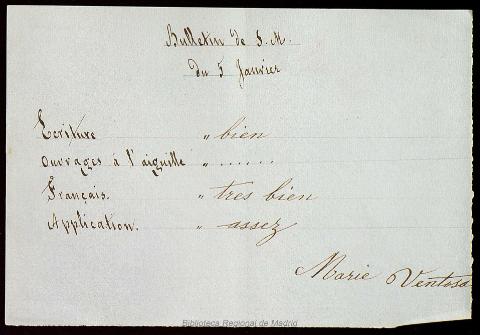 Bulletin de S. M.
du 5 Janvier
Ecriture " bien
Ouvrages à l'aiguille " ........
Français. " tres bien
Application. " assez
Marie Ventosa
Biblioteca Regional de Madrid